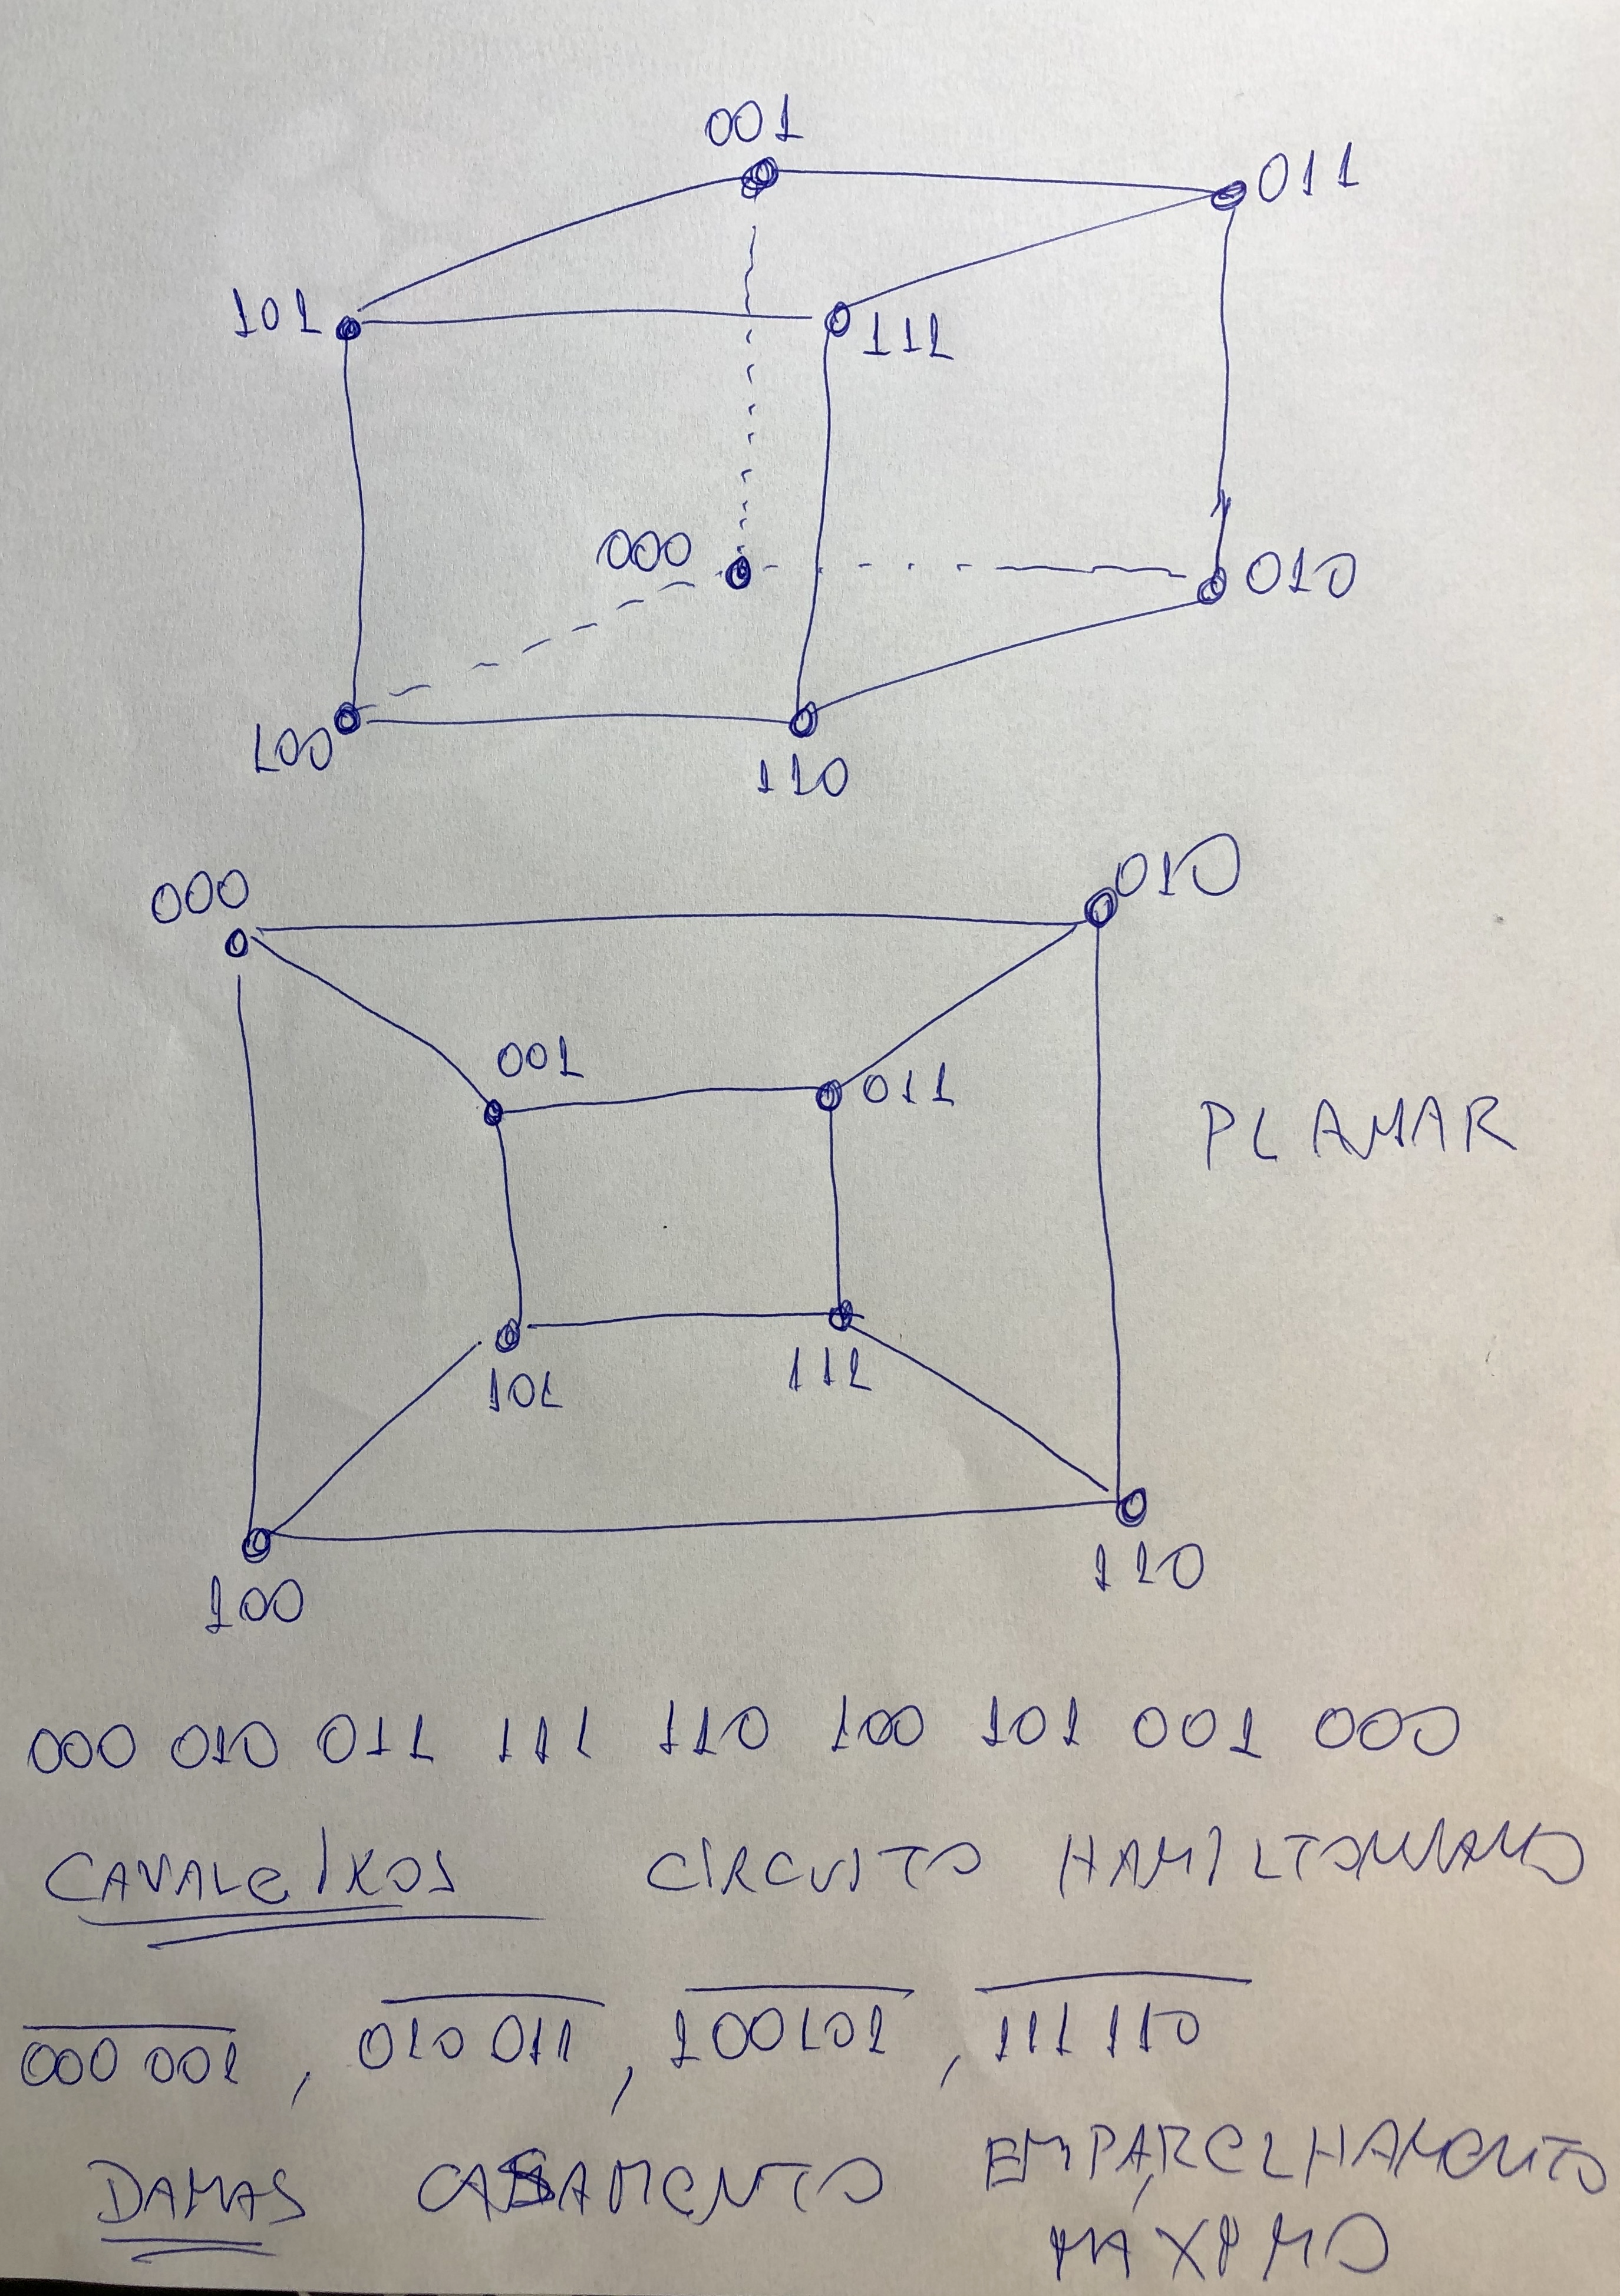 001
011
101
111
000
010
100
110
000
010
001
011
PLANAR
101
111
100
110
000 010 011 111 110 100 101 001 000
CAVALEIROS CIRCUITO HAMILTONIANO
000 001, 010 011, 100 101, 111 110
DAMAS CASAMENTO EMPARELHAMENTO
MÁXIMO